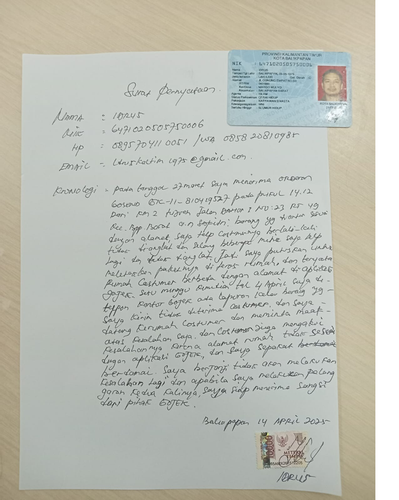 PROVINSI KALIMANTAN TIMUR
KOTA BALIKPAPAN
NIK : 6471020505750006
Surat Pernyataan
NAMA : IDRUS
NIK : 6471020505750006
HP : 089570411 0051 / WA 0858 20810985
EMAIL : idruskaltim1975@gmail.com
KRONOLOGI : pada tanggal 27 maret saya menerima orderan
Gosend GK-11-810419527 pada pukul 14.12
Dari KM 2 tujuan Jalan No:23 RT 49
Kec. Bpp Barat a.n Saputri barang yg di antar sesuai
dengan alamat. saya telp Customernya berkali-kali
tidak diangkat dan selang beberapa menit saya telp
lagi dan tidak diangkat. Jadi saya putuskan untuk
meletakkan paketnya di teras rumah, dan ternyata
Rumah Customer berbeda dengan alamat di aplikasi
gojek. Satu minggu kemudian tgl 4 April saya di
telpon Kantor Gojek ada laporan kalau barang yg
saya kirim tidak diterima Customer, dan saya
datang kerumah Customer dan meminta maaf
atas kesalahan saya. dan Customer juga mengakui
kesalahannya karena alamat rumah tidak sesuai
dengan aplikasi GOJEK, dan saya sepakat
berdamai. Saya berjanji tidak akan melakukan
kesalahan lagi dan apabila saya melakukan pelang
garan kedua kalinya, saya siap menerima sangsi
dari pihak GOJEK.
Balikpapan 14 APRIL 2025
10000
IDRUS